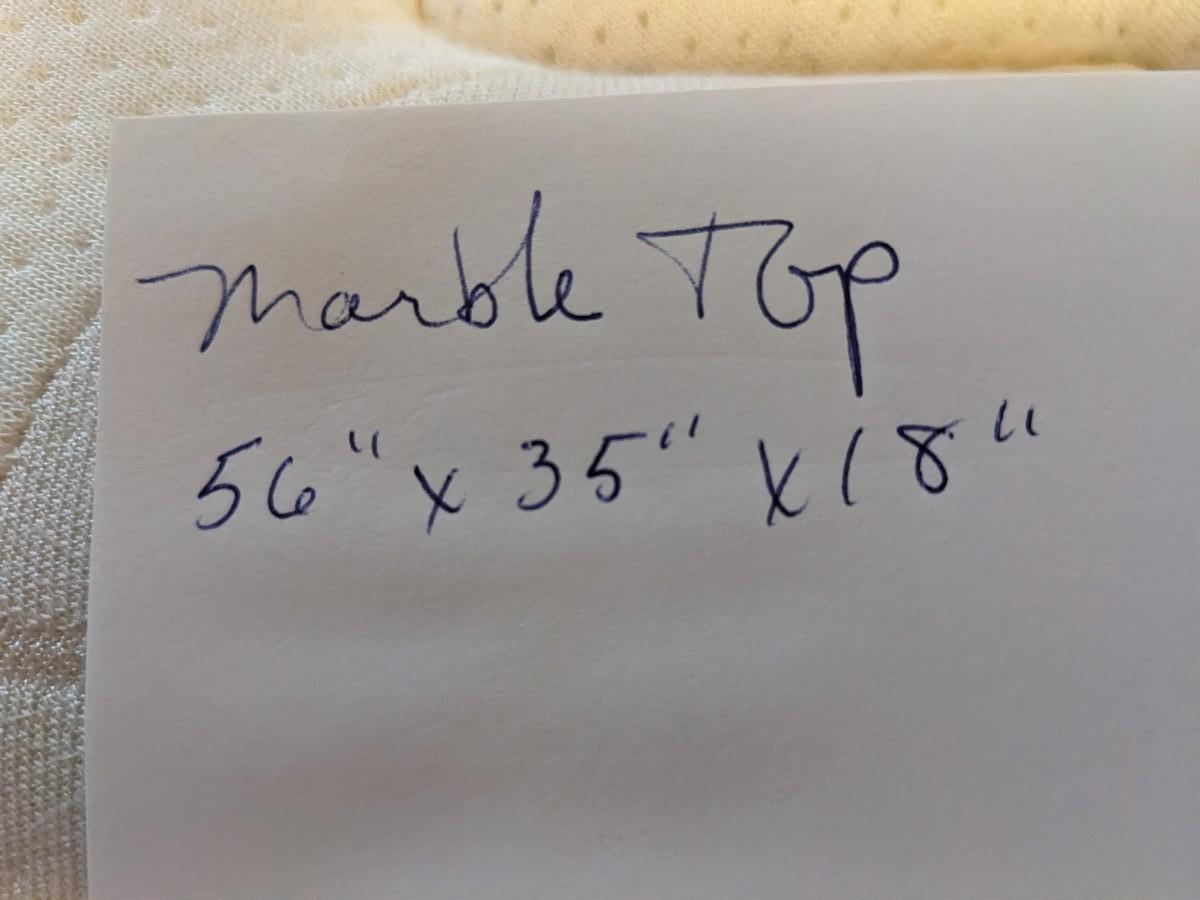 Marble Top
56" x 35" x 18"